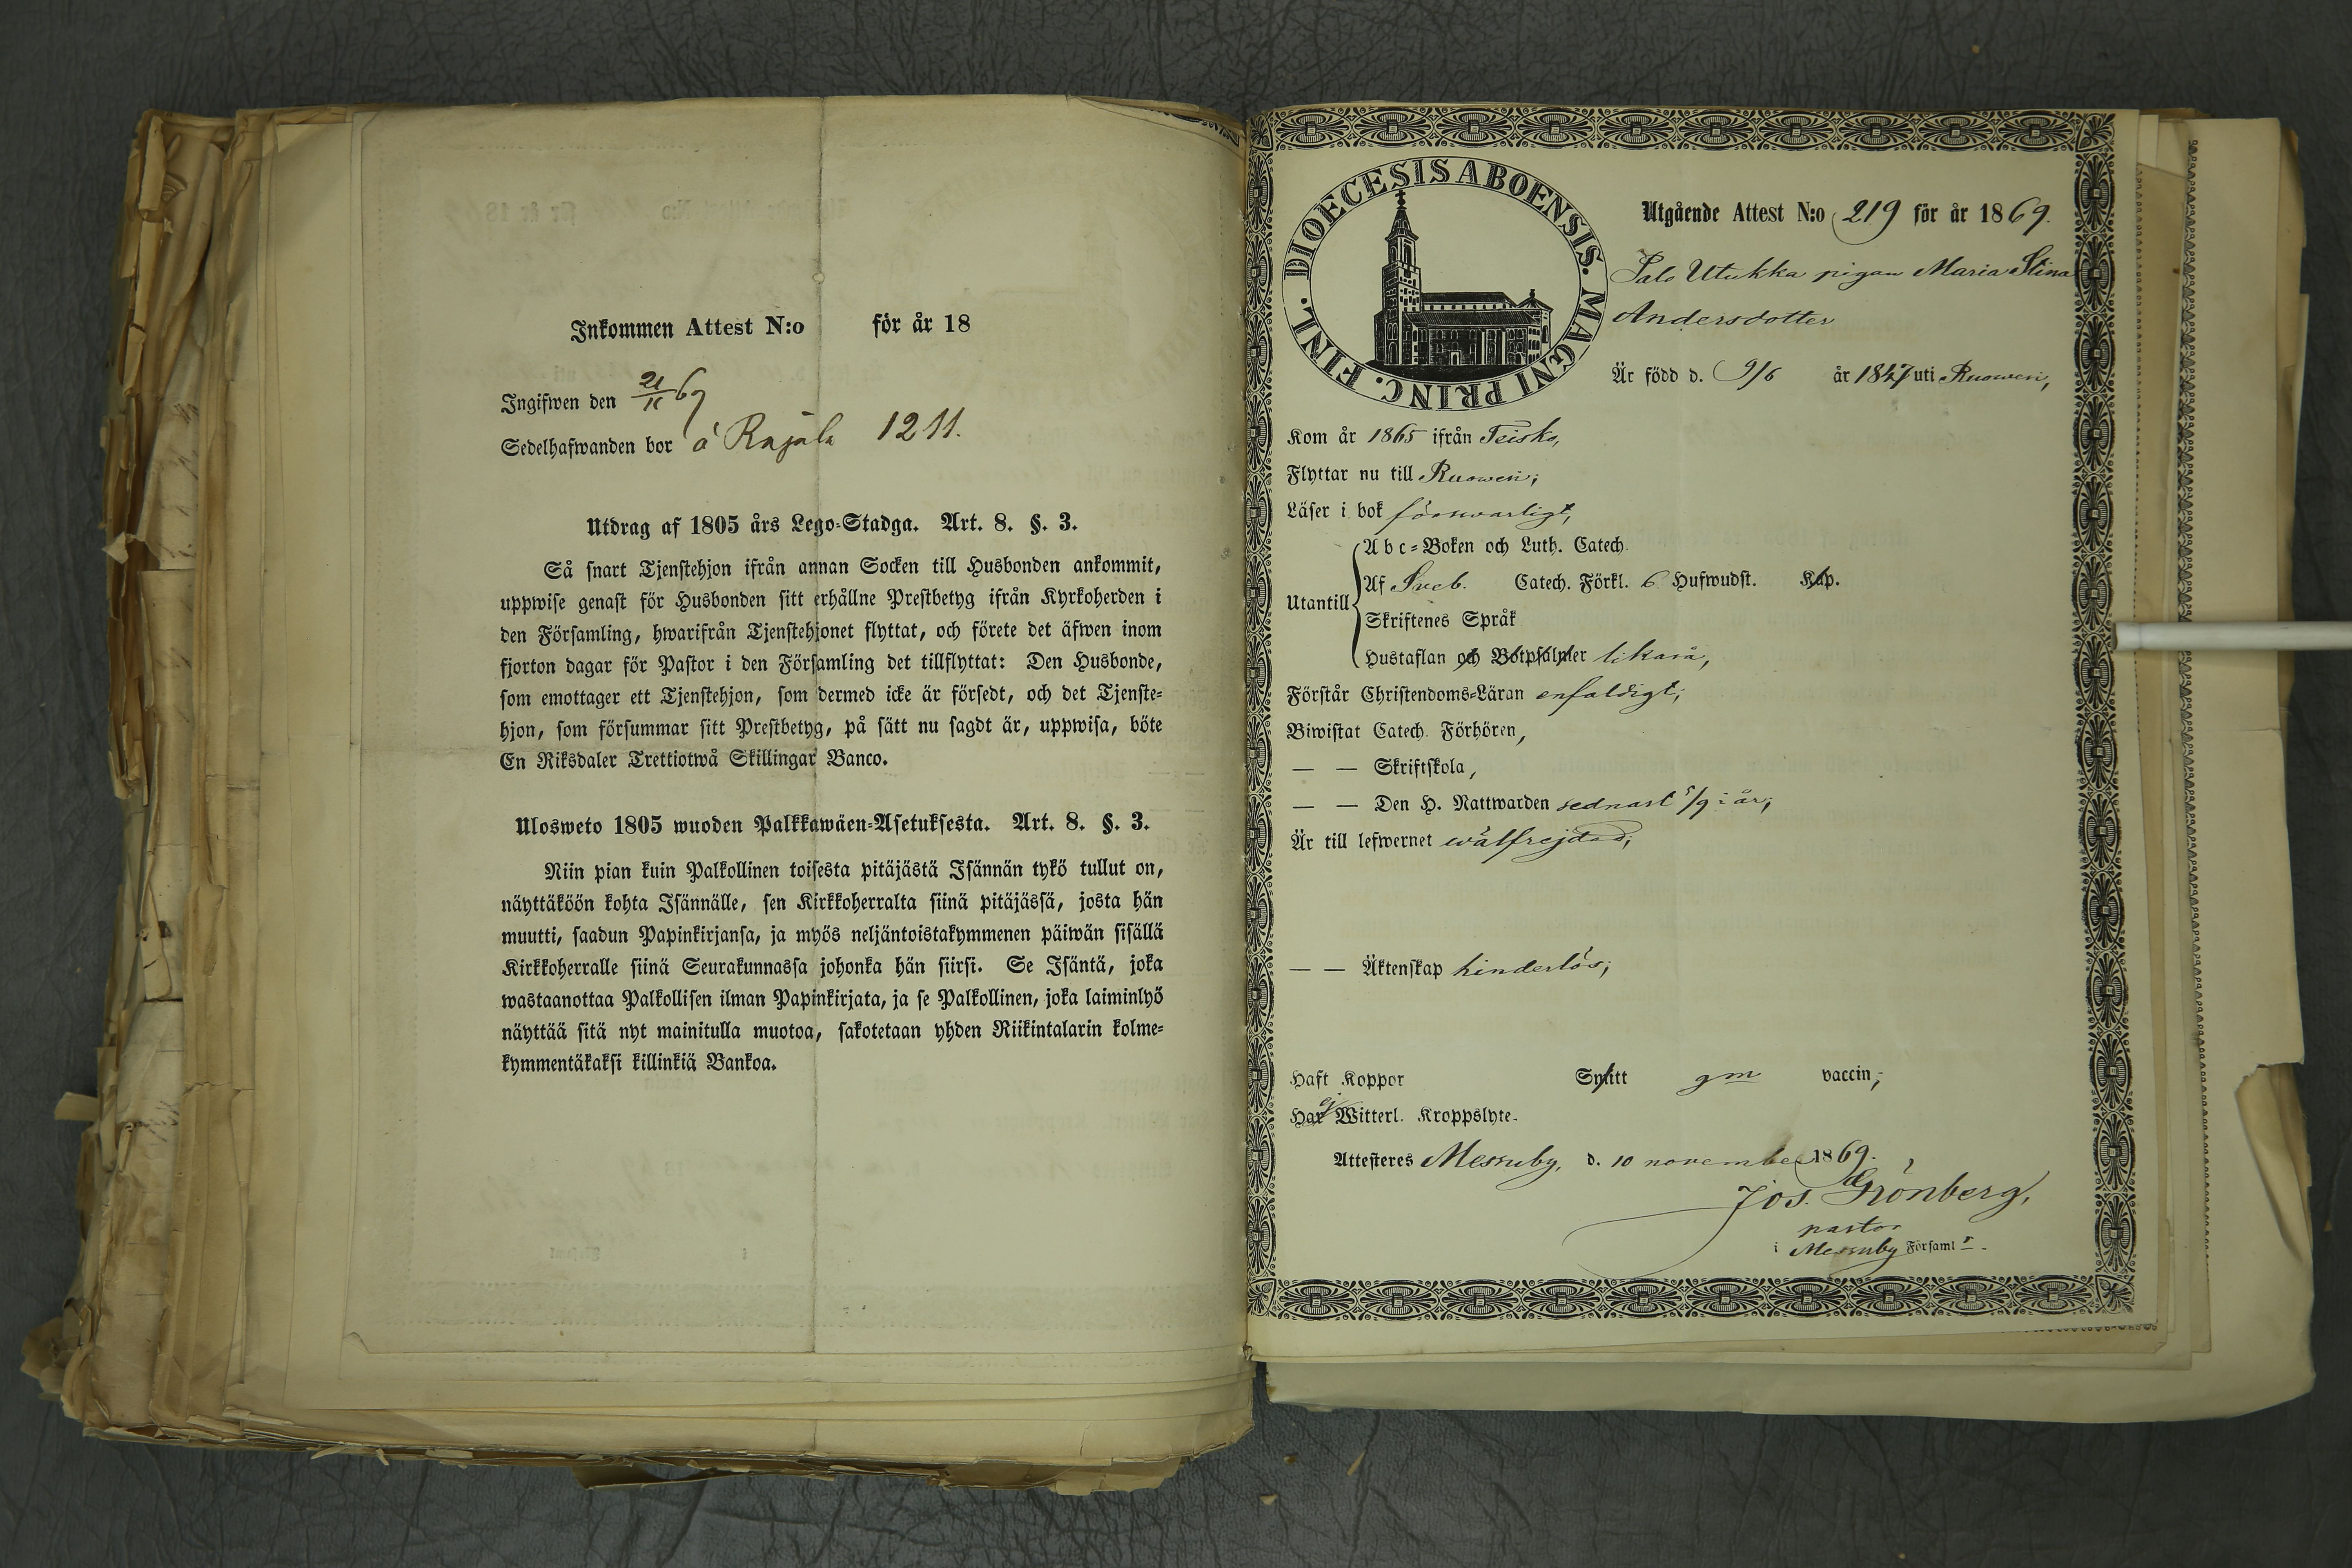 Inkommen Attest N:o för år 18
Ingifwen den 21/11 69
Sedelhafwanden bor å Rajala 1211.
Utdrag af 1805 års Lego-Stadga. Art. 8. §. 3.
Så snart Tjenstehjon ifrån annan Socken till Husbonden ankommit,
uppwise genast för Husbonden sitt erhållne Prestbetyg ifrån Kyrkoherden i
den Församling, hwarifrån Tjenstehjonet flyttat, och förete det äfwen inom
fjorton dagar för Pastor i den Församling det tillflyttat: Den Husbonde,
som emottager ett Tjenstehjon, som dermed icke är försedt, och det Tjenste-
hjon, som försummar sitt Prestbetyg, på sätt nu sagdt är, uppwisa, böte
En Riksdaler Trettiotwå Skillingar Banco.
Ulosweto 1805 wuoden Palkkawäen-Asetuksesta. Art. 8. §. 3.
Niin pian kuin Palkollinen toisesta pitäjästä Isännän tykö tullut on,
näyttäköön kohta Isännälle, sen Kirkkoherralta siinä pitäjässä, josta hän
muutti, saadun Papinkirjansa, ja myös neljäntoistakymmenen päiwän sisällä
Kirkkoherralle siinä Seurakunnassa johonka hän siirsi. Se Isäntä, joka
wastaanottaa Palkollisen ilman Papinkirjata, ja se Palkollinen, joka laiminlyö
näyttää sitä nyt mainitulla muotoa, sakotetaan yhden Riikintalarin kolme-
kymmentäkaksi killinkiä Bankoa.
DIOECESIS ABOENSIS. MAGNI PRINC. FINL.
Utgående Attest N:o 219 för år 1869.
Salo Utukka pigan Maria Stina
Andersdotter
Är född d. 9/6 år 1847 uti Ruowesi,
Kom år 1865 ifrån Teisko,
Flyttar nu till Ruowesi;
Läser i bok förswarligt,
Utantill
Abc-Boken och Luth. Catech.
Af Sveb. Catech. Förkl. 6 Hufwudst. Kap.
Skriftenes Språk
Hustaflan och Botpsalmer likaså,
Förstår Christendoms-Läran enfaldigt;
Biwistat Catech. Förhören,
— — Skriftskola,
— — Den H. Nattwarden sednast 5/9 i år;
Är till lefwernet wälfrejdad;
— — Äktenskap hinderlös;
Haft Koppor Synt gm vaccin;
Har ej Witterl. Kroppslyte.
Attesteres Messuby, d. 10 november 1869.
Jos. Grönberg,
pastor
i Messuby Församl.